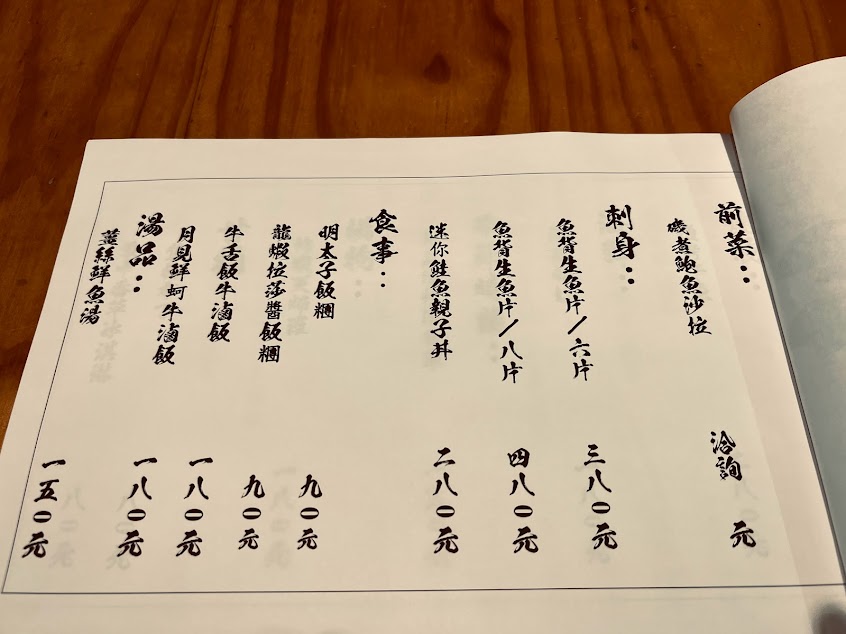 前菜：
磯煮鮑魚沙拉 洽詢 元
刺身：
魚背生魚片／六片 三八〇元
魚背生魚片／八片 四八〇元
迷你鮭魚親子丼 二八〇元
食事：
明太子飯糰 九〇元
龍蝦拉莎醬飯糰 九〇元
牛舌飯牛滷飯 一八〇元
月見鮮蚵牛滷飯 一八〇元
湯品：
薑絲鮮魚湯 一五〇元